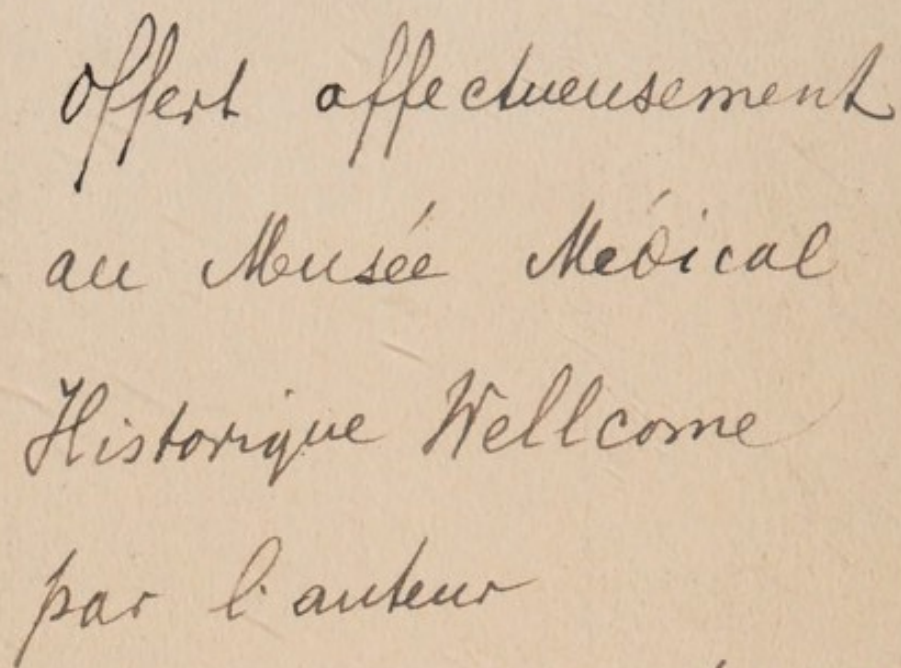 Offert affectueusement
au Musée Médical
Historique Wellcome
par l'auteur